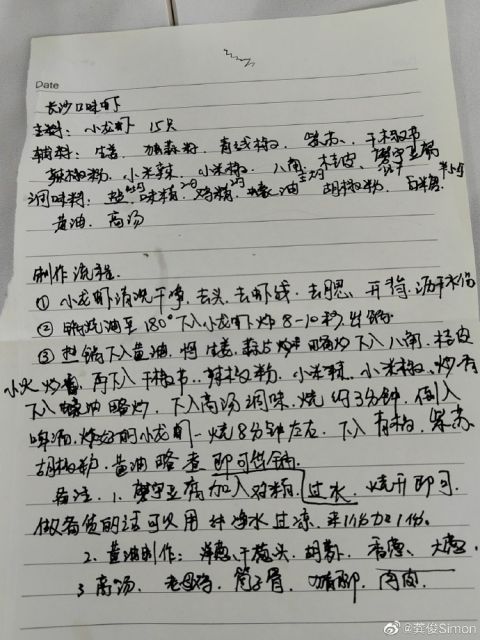 Date
长沙口味虾
主料: 小龙虾 15只
辅料: 生姜、 青线椒、紫苏、干椒节
辣椒粉、小米辣、小米椒、八角、桂皮、樊宁豆腐
调味料: 盐、味精、鸡精、蠔油、胡椒粉、白米醋
黄油、高汤
制作流程
① 小龙虾清洗干净、去头、去虾线、去腮、开背、沥干水份
② 锅烧油至180°下入小龙虾炸8-10秒出锅
③ 热锅下入黄油、将生姜、蒜片炒 略炒下入八角、桂皮
小火炒香、再下入干椒节、辣椒粉、小米辣、小米椒、炒香
下入蠔油略炒、下入高汤调味、烧约3分钟、倒入
啤酒、炸好的小龙虾一烧8分钟左右、下入青椒、紫苏
胡椒粉、黄油略煮即可出锅
备注、1、樊宁豆腐加入 过水、烧开即可、
做备货的话可以用纯净水过凉、
2、黄油制作: 洋葱、干葱头、胡萝、香葱、大葱
3、高汤、老母鸡、筒子骨、 肉皮
@龚俊Simon